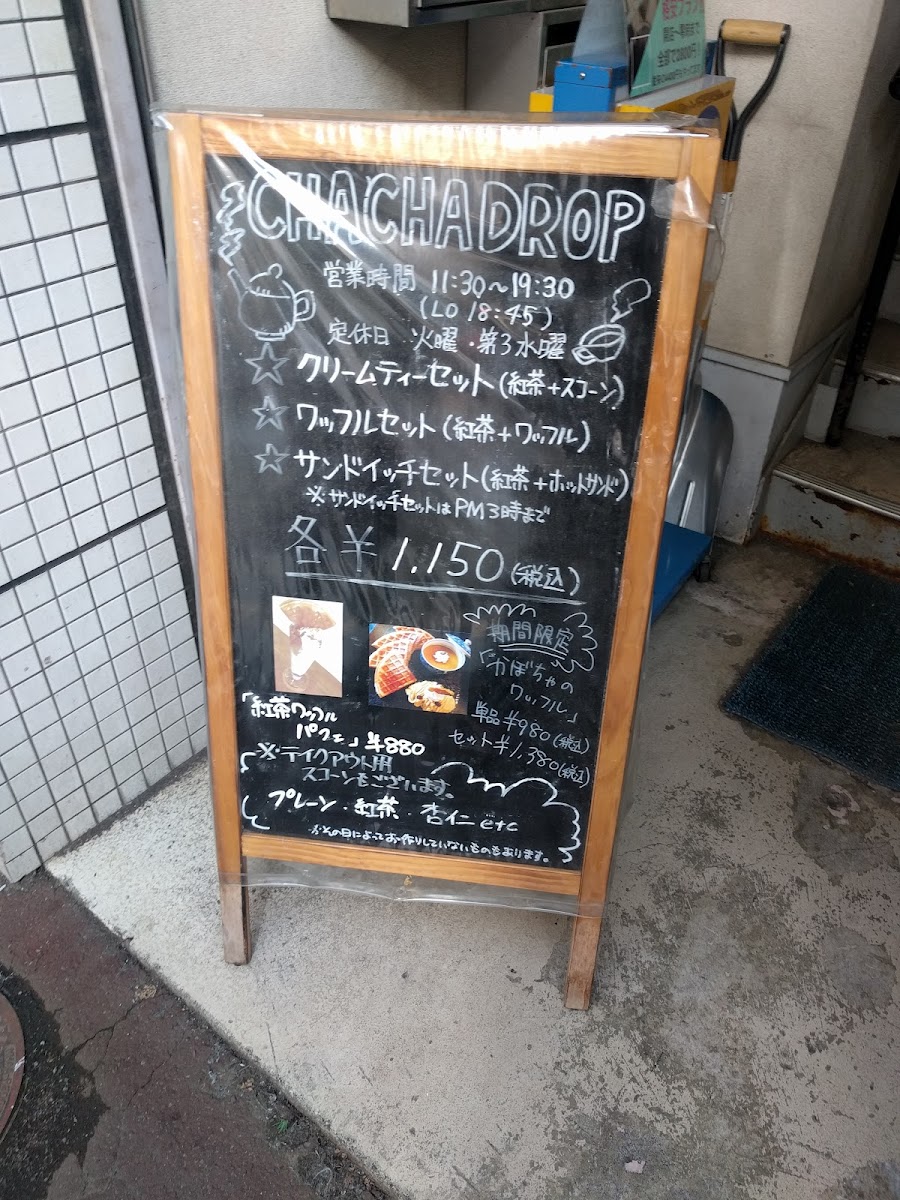 格安プラン
開店～最終まで
全部で2800円!
CHACHADROP
営業時間 11:30～19:30
(LO 18:45)
定休日 火曜・第3水曜
☆ クリームティーセット(紅茶+スコーン)
☆ ワッフルセット(紅茶+ワッフル)
☆ サンドイッチセット(紅茶+ホットサンド)
※サンドイッチセットはPM3時まで
各¥1.150(税込)
期間限定
「かぼちゃの
ワッフル」
単品¥980(税込)
セット¥1.380(税込)
「紅茶ワッフル
パフェ」¥880
※テイクアウト用
スコーンもございます。
プレーン・紅茶・杏仁etc
※その日によってお作りしていないものもあります。